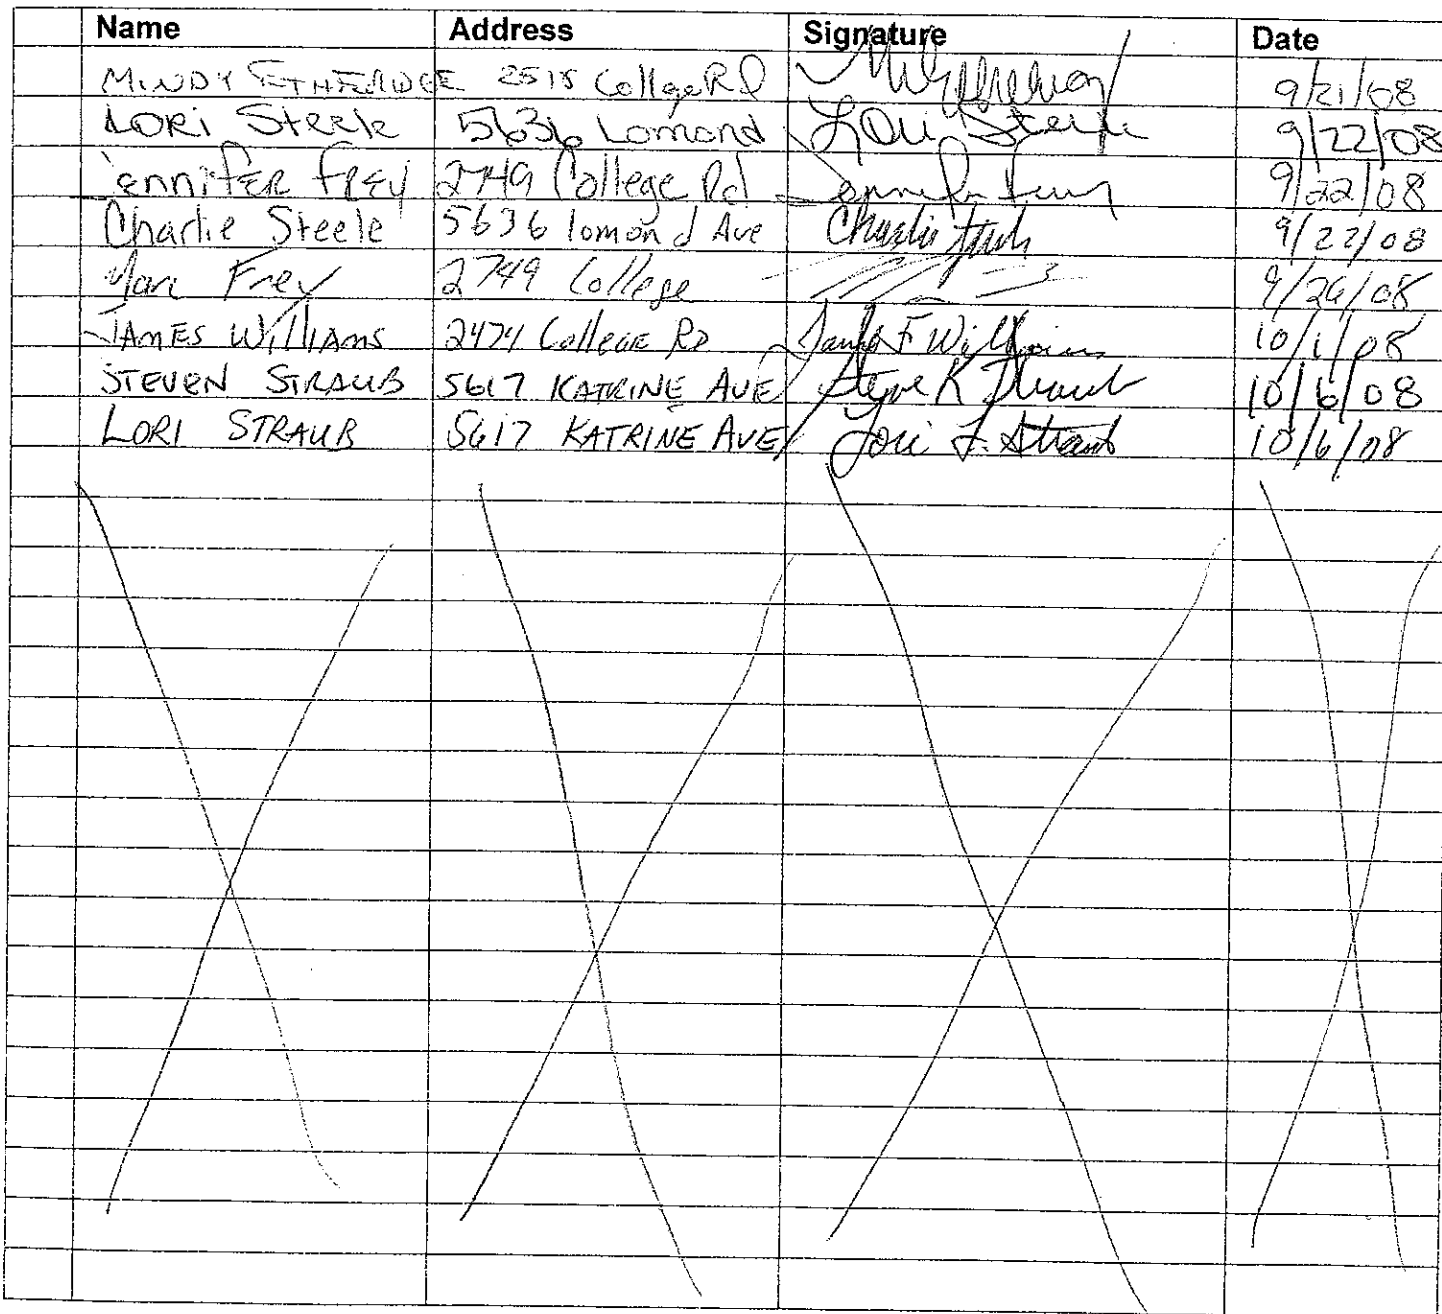 Name Address Signature Date
MINDY ETHERIDGE College Rd 9/21/08
LORI Steele 5636 Lomond Lori Steele 9/22/08
Jennifer Frey 2749 College Rd Jennifer Frey 9/22/08
Charlie Steele 5636 lomond Ave Charlie Steele 9/22/08
Frey 2749 College
JAMES WILLIAMS 2474 College Rd James F Williams 10/1/08
STEVEN STRAUB 5617 KATRINE AVE Steve K Straub 10/6/08
LORI STRAUB 5617 KATRINE AVE Lori F. Straub 10/6/08